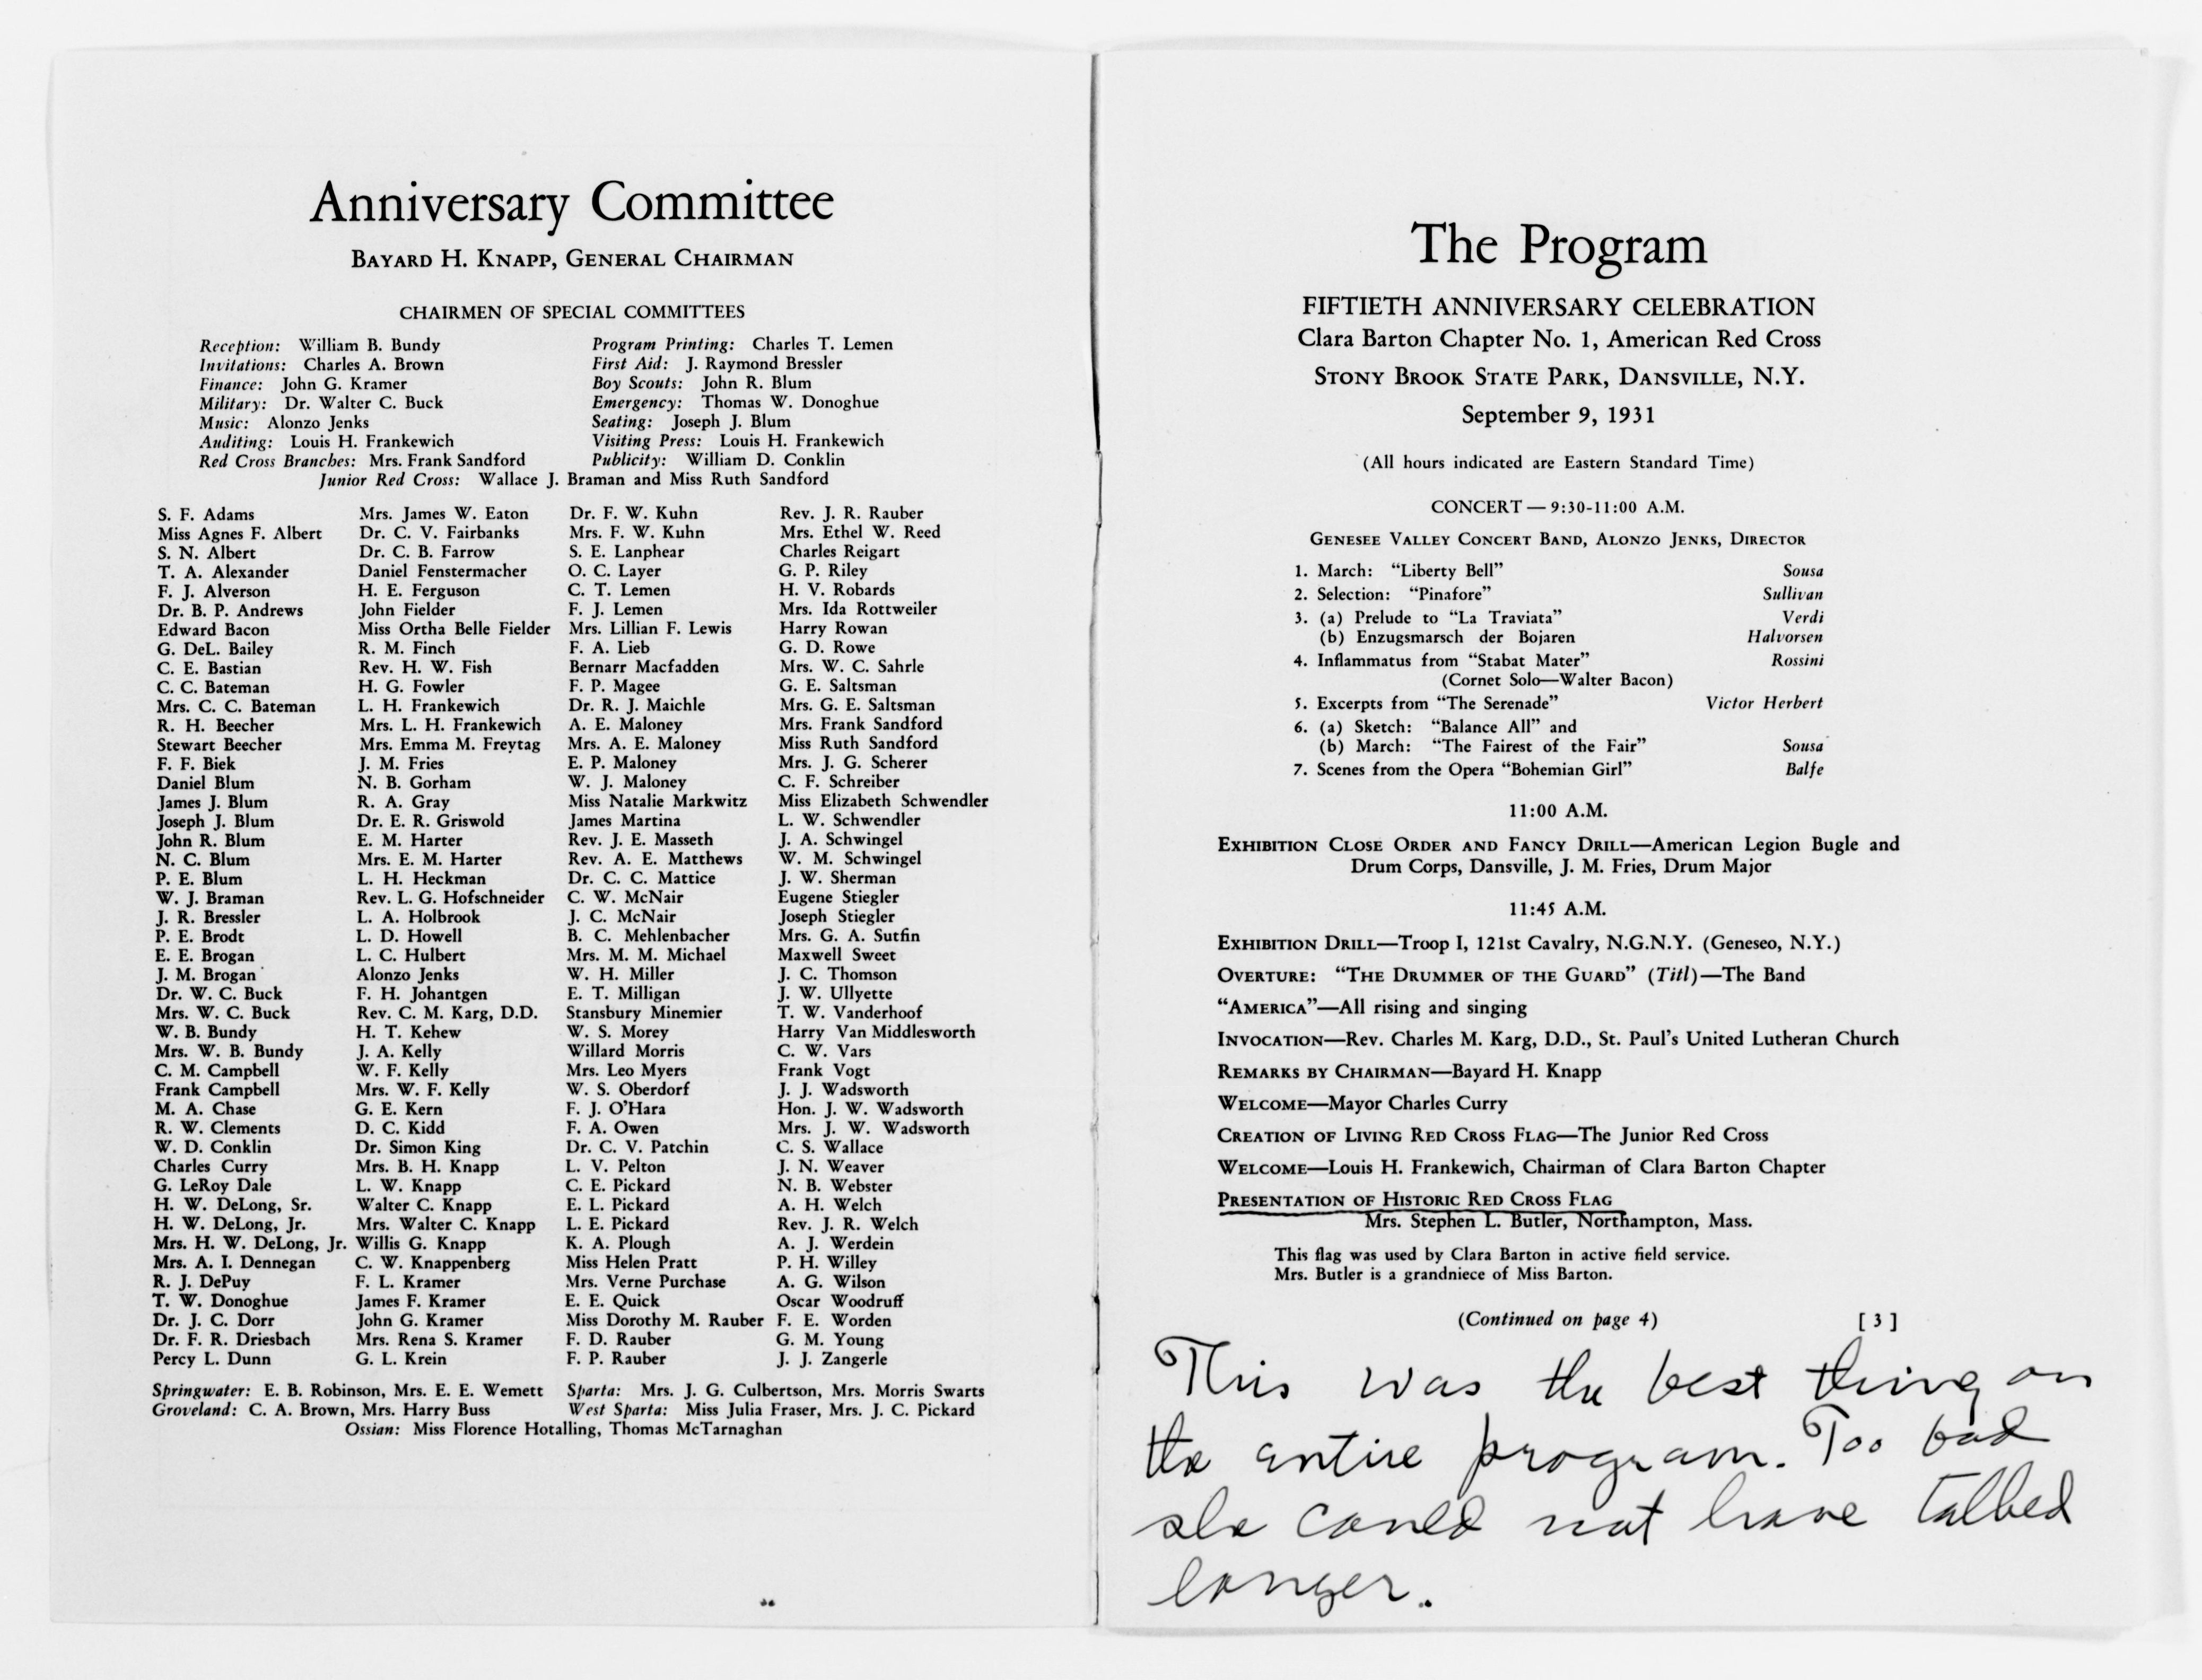 Anniversary Committee
BAYARD H. KNAPP, GENERAL CHAIRMAN
CHAIRMEN OF SPECIAL COMMITTEES
Reception: William B. Bundy
Invitations: Charles A. Brown
Finance: John G. Kramer
Military: Dr. Walter C. Buck
Music: Alonzo Jenks
Auditing: Louis H. Frankewich
Red Cross Branches: Mrs. Frank Sandford
Program Printing: Charles T. Lemen
First Aid: J. Raymond Bressler
Boy Scouts: John R. Blum
Emergency: Thomas W. Donoghue
Seating: Joseph J. Blum
Visiting Press: Louis H. Frankewich
Publicity: William D. Conklin
Junior Red Cross: Wallace J. Braman and Miss Ruth Sandford
S. F. Adams
Miss Agnes F. Albert
S. N. Albert
T. A. Alexander
F. J. Alverson
Dr. B. P. Andrews
Edward Bacon
G. DeL. Bailey
C. E. Bastian
C. C. Bateman
Mrs. C. C. Bateman
R. H. Beecher
Stewart Beecher
F. F. Biek
Daniel Blum
James J. Blum
Joseph J. Blum
John R. Blum
N. C. Blum
P. E. Blum
W. J. Braman
J. R. Bressler
P. E. Brodt
E. E. Brogan
J. M. Brogan
Dr. W. C. Buck
Mrs. W. C. Buck
W. B. Bundy
Mrs. W. B. Bundy
C. M. Campbell
Frank Campbell
M. A. Chase
R. W. Clements
W. D. Conklin
Charles Curry
G. LeRoy Dale
H. W. DeLong, Sr.
H. W. DeLong, Jr.
Mrs. H. W. DeLong, Jr.
Mrs. A. I. Dennegan
R. J. DePuy
T. W. Donoghue
Dr. J. C. Dorr
Dr. F. R. Driesbach
Percy L. Dunn
Mrs. James W. Eaton
Dr. C. V. Fairbanks
Dr. C. B. Farrow
Daniel Fenstermacher
H. E. Ferguson
John Fielder
Miss Ortha Belle Fielder
R. M. Finch
Rev. H. W. Fish
H. G. Fowler
L. H. Frankewich
Mrs. L. H. Frankewich
Mrs. Emma M. Freytag
J. M. Fries
N. B. Gorham
R. A. Gray
Dr. E. R. Griswold
E. M. Harter
Mrs. E. M. Harter
L. H. Heckman
Rev. L. G. Hofschneider
L. A. Holbrook
L. D. Howell
L. C. Hulbert
Alonzo Jenks
F. H. Johantgen
Rev. C. M. Karg, D.D.
H. T. Kehew
J. A. Kelly
W. F. Kelly
Mrs. W. F. Kelly
G. E. Kern
D. C. Kidd
Dr. Simon King
Mrs. B. H. Knapp
L. W. Knapp
Walter C. Knapp
Mrs. Walter C. Knapp
Willis G. Knapp
C. W. Knappenberg
F. L. Kramer
James F. Kramer
John G. Kramer
Mrs. Rena S. Kramer
G. L. Krein
Dr. F. W. Kuhn
Mrs. F. W. Kuhn
S. E. Lanphear
O. C. Layer
C. T. Lemen
F. J. Lemen
Mrs. Lillian F. Lewis
F. A. Lieb
Bernarr Macfadden
F. P. Magee
Dr. R. J. Maichle
A. E. Maloney
Mrs. A. E. Maloney
E. P. Maloney
W. J. Maloney
Miss Natalie Markwitz
James Martina
Rev. J. E. Masseth
Rev. A. E. Matthews
Dr. C. C. Mattice
C. W. McNair
J. C. McNair
B. C. Mehlenbacher
Mrs. M. M. Michael
W. H. Miller
E. T. Milligan
Stansbury Minemier
W. S. Morey
Willard Morris
Mrs. Leo Myers
W. S. Oberdorf
F. J. O'Hara
F. A. Owen
Dr. C. V. Patchin
L. V. Pelton
C. E. Pickard
E. L. Pickard
L. E. Pickard
K. A. Plough
Miss Helen Pratt
Mrs. Verne Purchase
E. E. Quick
Miss Dorothy M. Rauber
F. D. Rauber
F. P. Rauber
Rev. J. R. Rauber
Mrs. Ethel W. Reed
Charles Reigart
G. P. Riley
H. V. Robards
Mrs. Ida Rottweiler
Harry Rowan
G. D. Rowe
Mrs. W. C. Sahrle
G. E. Saltsman
Mrs. G. E. Saltsman
Mrs. Frank Sandford
Miss Ruth Sandford
Mrs. J. G. Scherer
C. F. Schreiber
Miss Elizabeth Schwendler
L. W. Schwendler
J. A. Schwingel
W. M. Schwingel
J. W. Sherman
Eugene Stiegler
Joseph Stiegler
Mrs. G. A. Sutfin
Maxwell Sweet
J. C. Thomson
J. W. Ullyette
T. W. Vanderhoof
Harry Van Middlesworth
C. W. Vars
Frank Vogt
J. J. Wadsworth
Hon. J. W. Wadsworth
Mrs. J. W. Wadsworth
C. S. Wallace
J. N. Weaver
N. B. Webster
A. H. Welch
Rev. J. R. Welch
A. J. Werdein
P. H. Willey
A. G. Wilson
Oscar Woodruff
F. E. Worden
G. M. Young
J. J. Zangerle
Springwater: E. B. Robinson, Mrs. E. E. Wemett
Groveland: C. A. Brown, Mrs. Harry Buss
Sparta: Mrs. J. G. Culbertson, Mrs. Morris Swarts
West Sparta: Miss Julia Fraser, Mrs. J. C. Pickard
Ossian: Miss Florence Hotalling, Thomas McTarnaghan
The Program
FIFTIETH ANNIVERSARY CELEBRATION
Clara Barton Chapter No. 1, American Red Cross
STONY BROOK STATE PARK, DANSVILLE, N.Y.
September 9, 1931
(All hours indicated are Eastern Standard Time)
CONCERT — 9:30-11:00 A.M.
GENESEE VALLEY CONCERT BAND, ALONZO JENKS, DIRECTOR
1. March: "Liberty Bell" Sousa
2. Selection: "Pinafore" Sullivan
3. (a) Prelude to "La Traviata" Verdi
(b) Enzugsmarsch der Bojaren Halvorsen
4. Inflammatus from "Stabat Mater" Rossini
(Cornet Solo—Walter Bacon)
5. Excerpts from "The Serenade" Victor Herbert
6. (a) Sketch: "Balance All" and
(b) March: "The Fairest of the Fair" Sousa
7. Scenes from the Opera "Bohemian Girl" Balfe
11:00 A.M.
EXHIBITION CLOSE ORDER AND FANCY DRILL—American Legion Bugle and
Drum Corps, Dansville, J. M. Fries, Drum Major
11:45 A.M.
EXHIBITION DRILL—Troop I, 121st Cavalry, N.G.N.Y. (Geneseo, N.Y.)
OVERTURE: "THE DRUMMER OF THE GUARD" (Titl)—The Band
"AMERICA"—All rising and singing
INVOCATION—Rev. Charles M. Karg, D.D., St. Paul's United Lutheran Church
REMARKS BY CHAIRMAN—Bayard H. Knapp
WELCOME—Mayor Charles Curry
CREATION OF LIVING RED CROSS FLAG—The Junior Red Cross
WELCOME—Louis H. Frankewich, Chairman of Clara Barton Chapter
PRESENTATION OF HISTORIC RED CROSS FLAG
Mrs. Stephen L. Butler, Northampton, Mass.
This flag was used by Clara Barton in active field service.
Mrs. Butler is a grandniece of Miss Barton.
(Continued on page 4) [ 3 ]
This was the best thing on
the entire program. Too bad
she could not have talked
longer.